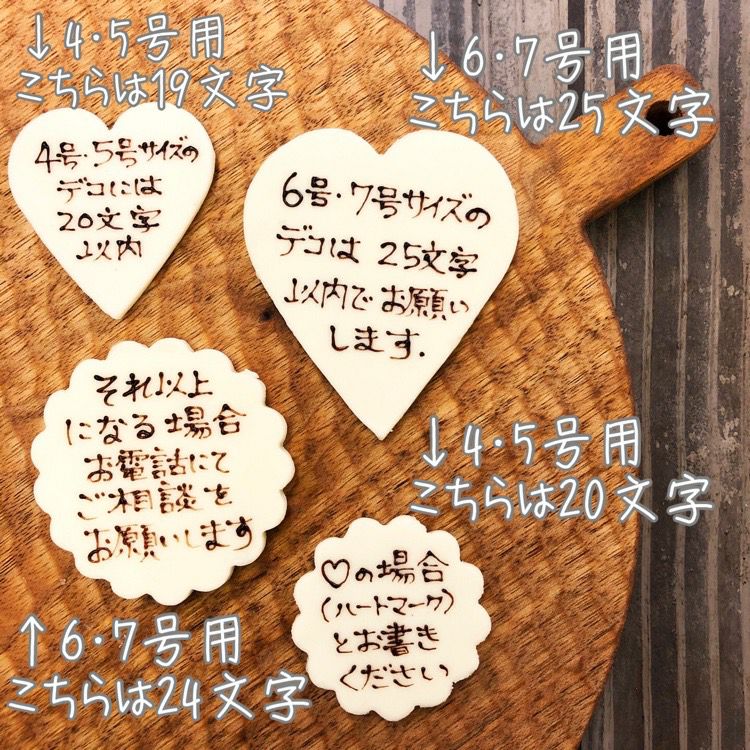 ↓4・5号用
こちらは19文字
4号・5号サイズの
デコには
20文字
以内
↓6・7号用
こちらは25文字
6号・7号サイズの
デコは 25文字
以内でお願い
します.
それ以上
になる場合
お電話にて
ご相談を
お願いします
↑6・7号用
こちらは24文字
↓4・5号用
こちらは20文字
♡の場合
(ハートマーク)
とお書き
ください